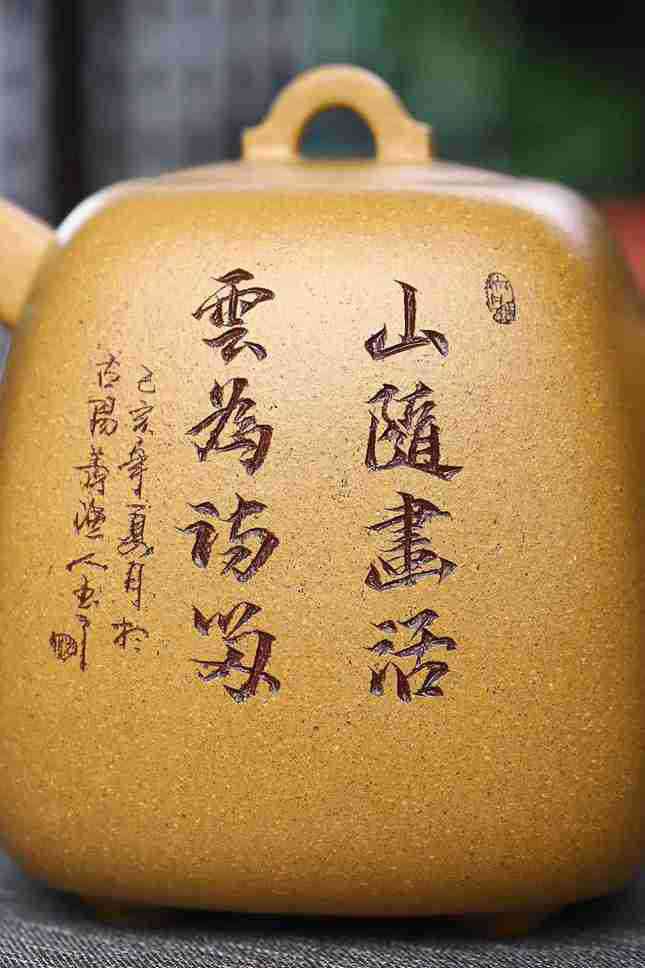 山隨畫活
雲為詩留
己亥年夏月於
古陽羨漁人書